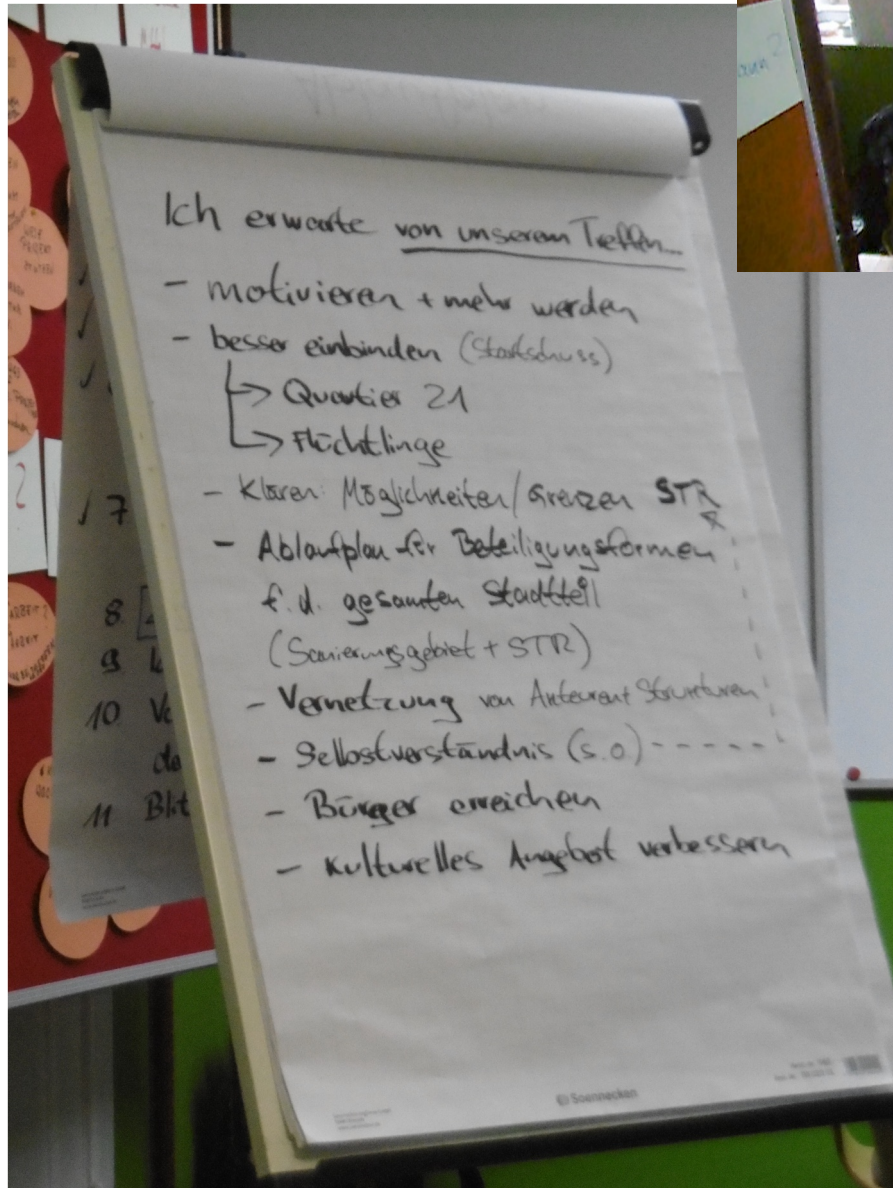 Ich erwarte von unserem Treffen...
- motivieren + mehr werden
- besser einbinden (Startschuss)
→ Quartier 21
→ Flüchtlinge
- Klären: Möglichkeiten/Grenzen STR
- Ablaufplan für Beteiligungsformen
f. d. gesamten Stadtteil
(Sanierungsgebiet + STR)
- Vernetzung von Akteuren + Strukturen
- Selbstverständnis (s.o.) - - - - -
- Bürger erreichen
- Kulturelles Angebot verbessern
Soennecken
7
8
9
10
11 Blit